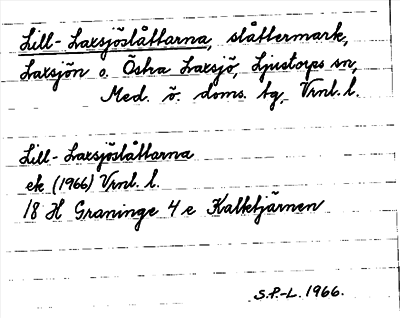 Lill-Laxsjöslåttarna, slåttermark,
Laxsjön o. Östra Laxsjö, Ljustorps sn,
Med. ö. doms. tg, Vrnl. l.
Lill-Laxsjöslåttarna
ek (1966) Vrnl. l.
18 H Graninge 4 e Kalktjärnen
S.P.-L. 1966.